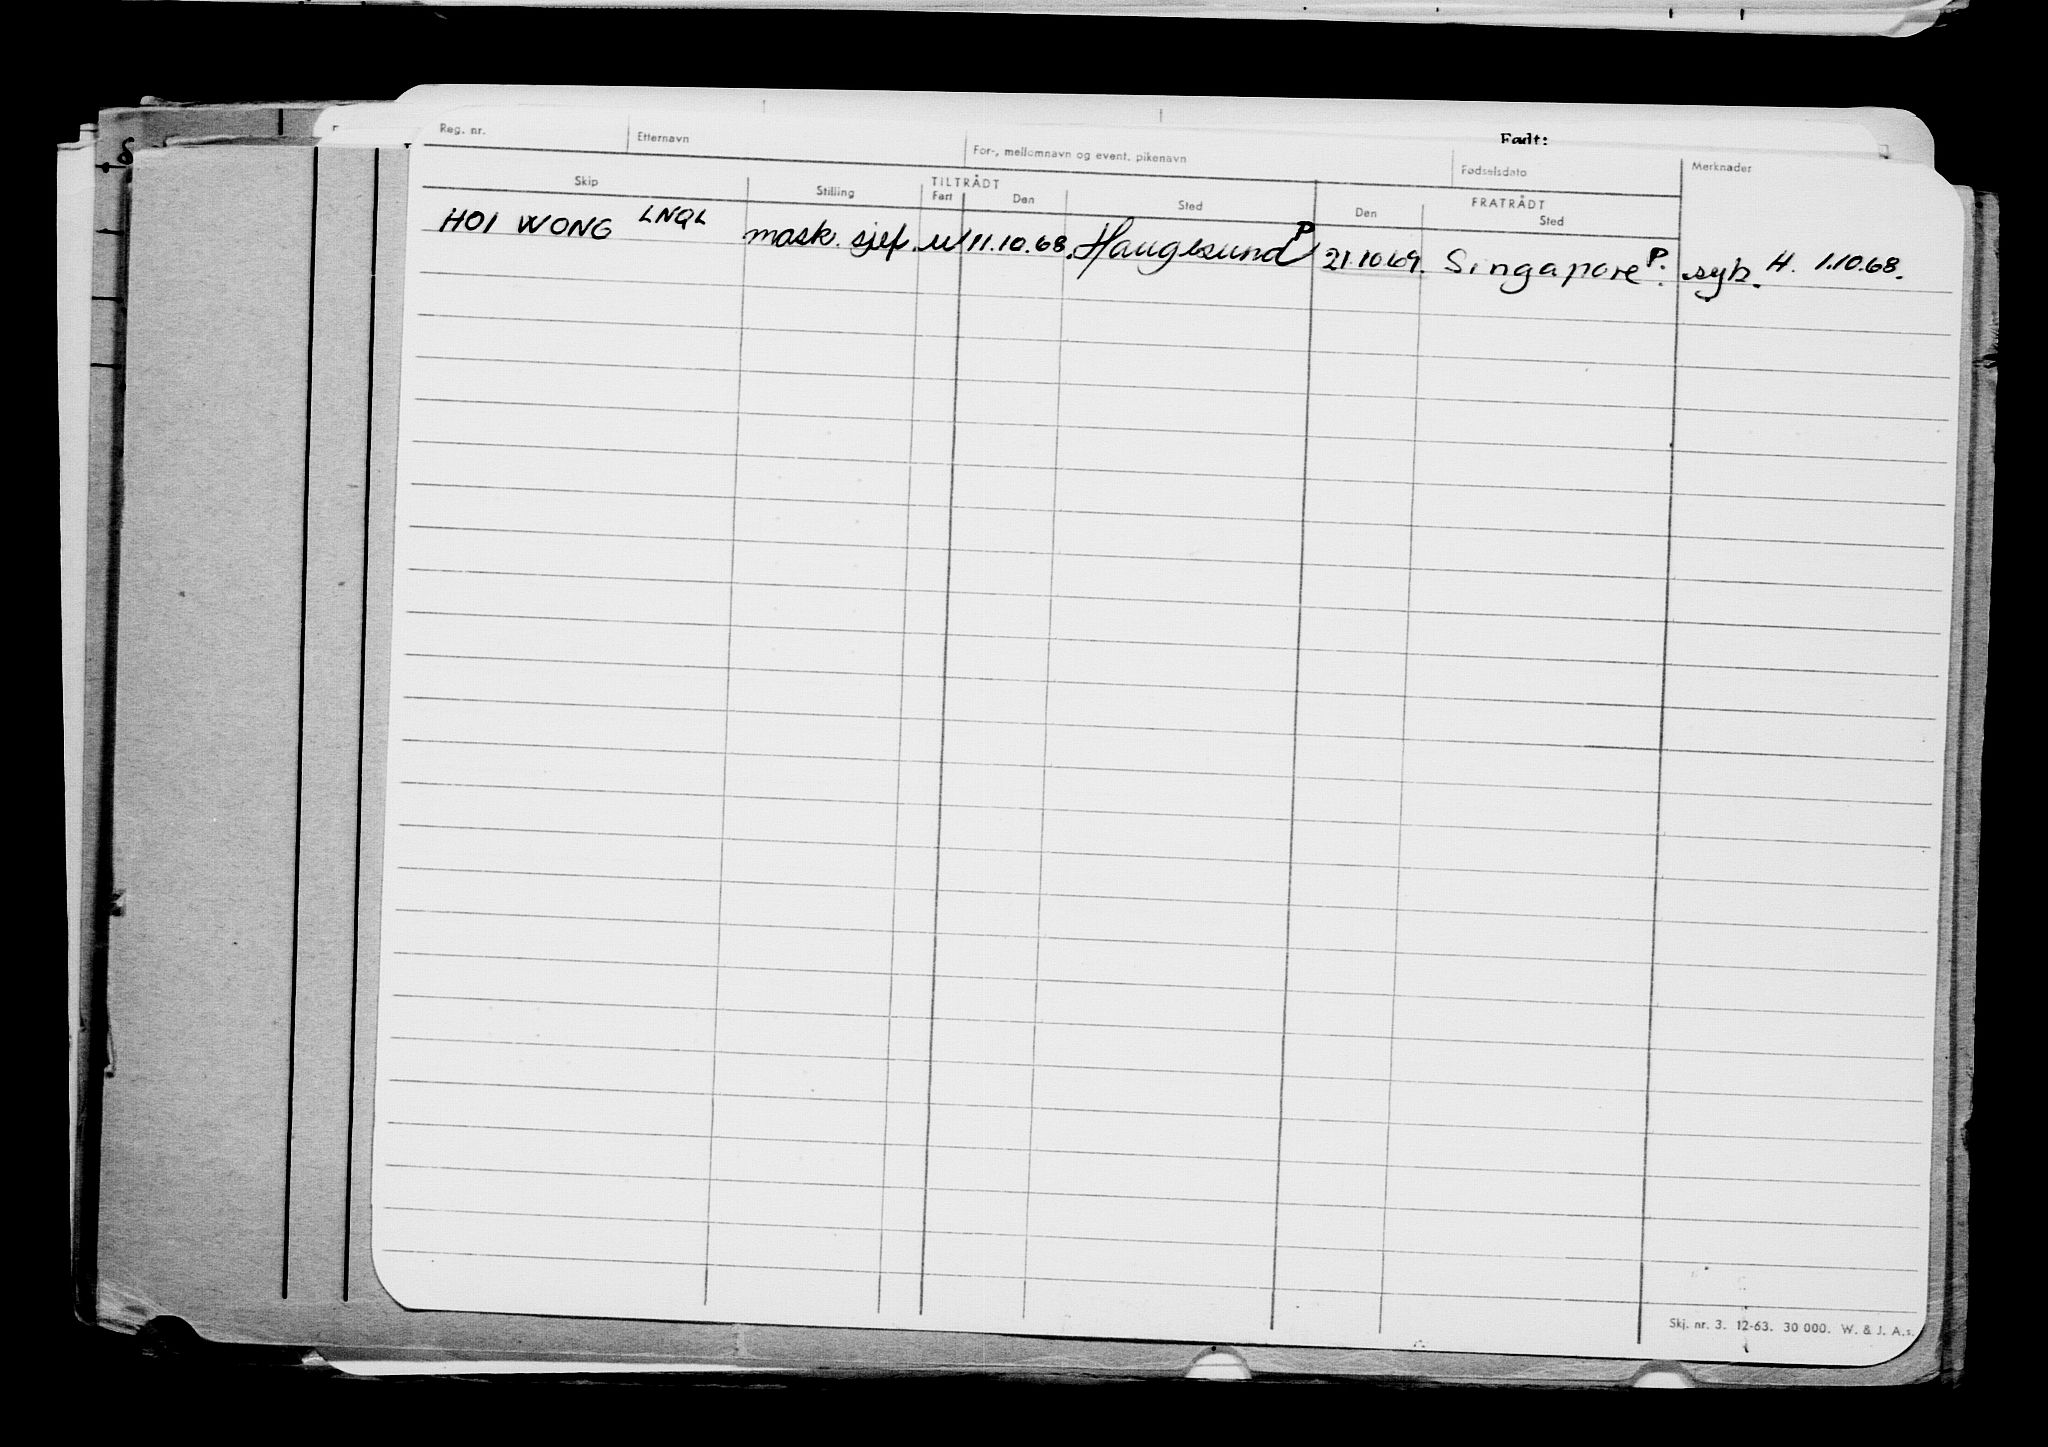 Født:
Reg. nr. Etternavn For-, mellomnavn og event. pikenavn Fødselsdato Merknader
TILTRÅDT FRATRÅDT
Skip Stilling Fart Den Sted Den Sted
HOI WONG LNQL mask. sjef. u 11.10.68. Haugesund P 21.10.69. Singapore P. syk. H. 1.10.68.
Skj. nr. 3. 12-63. 30 000. W. & J. A.s.